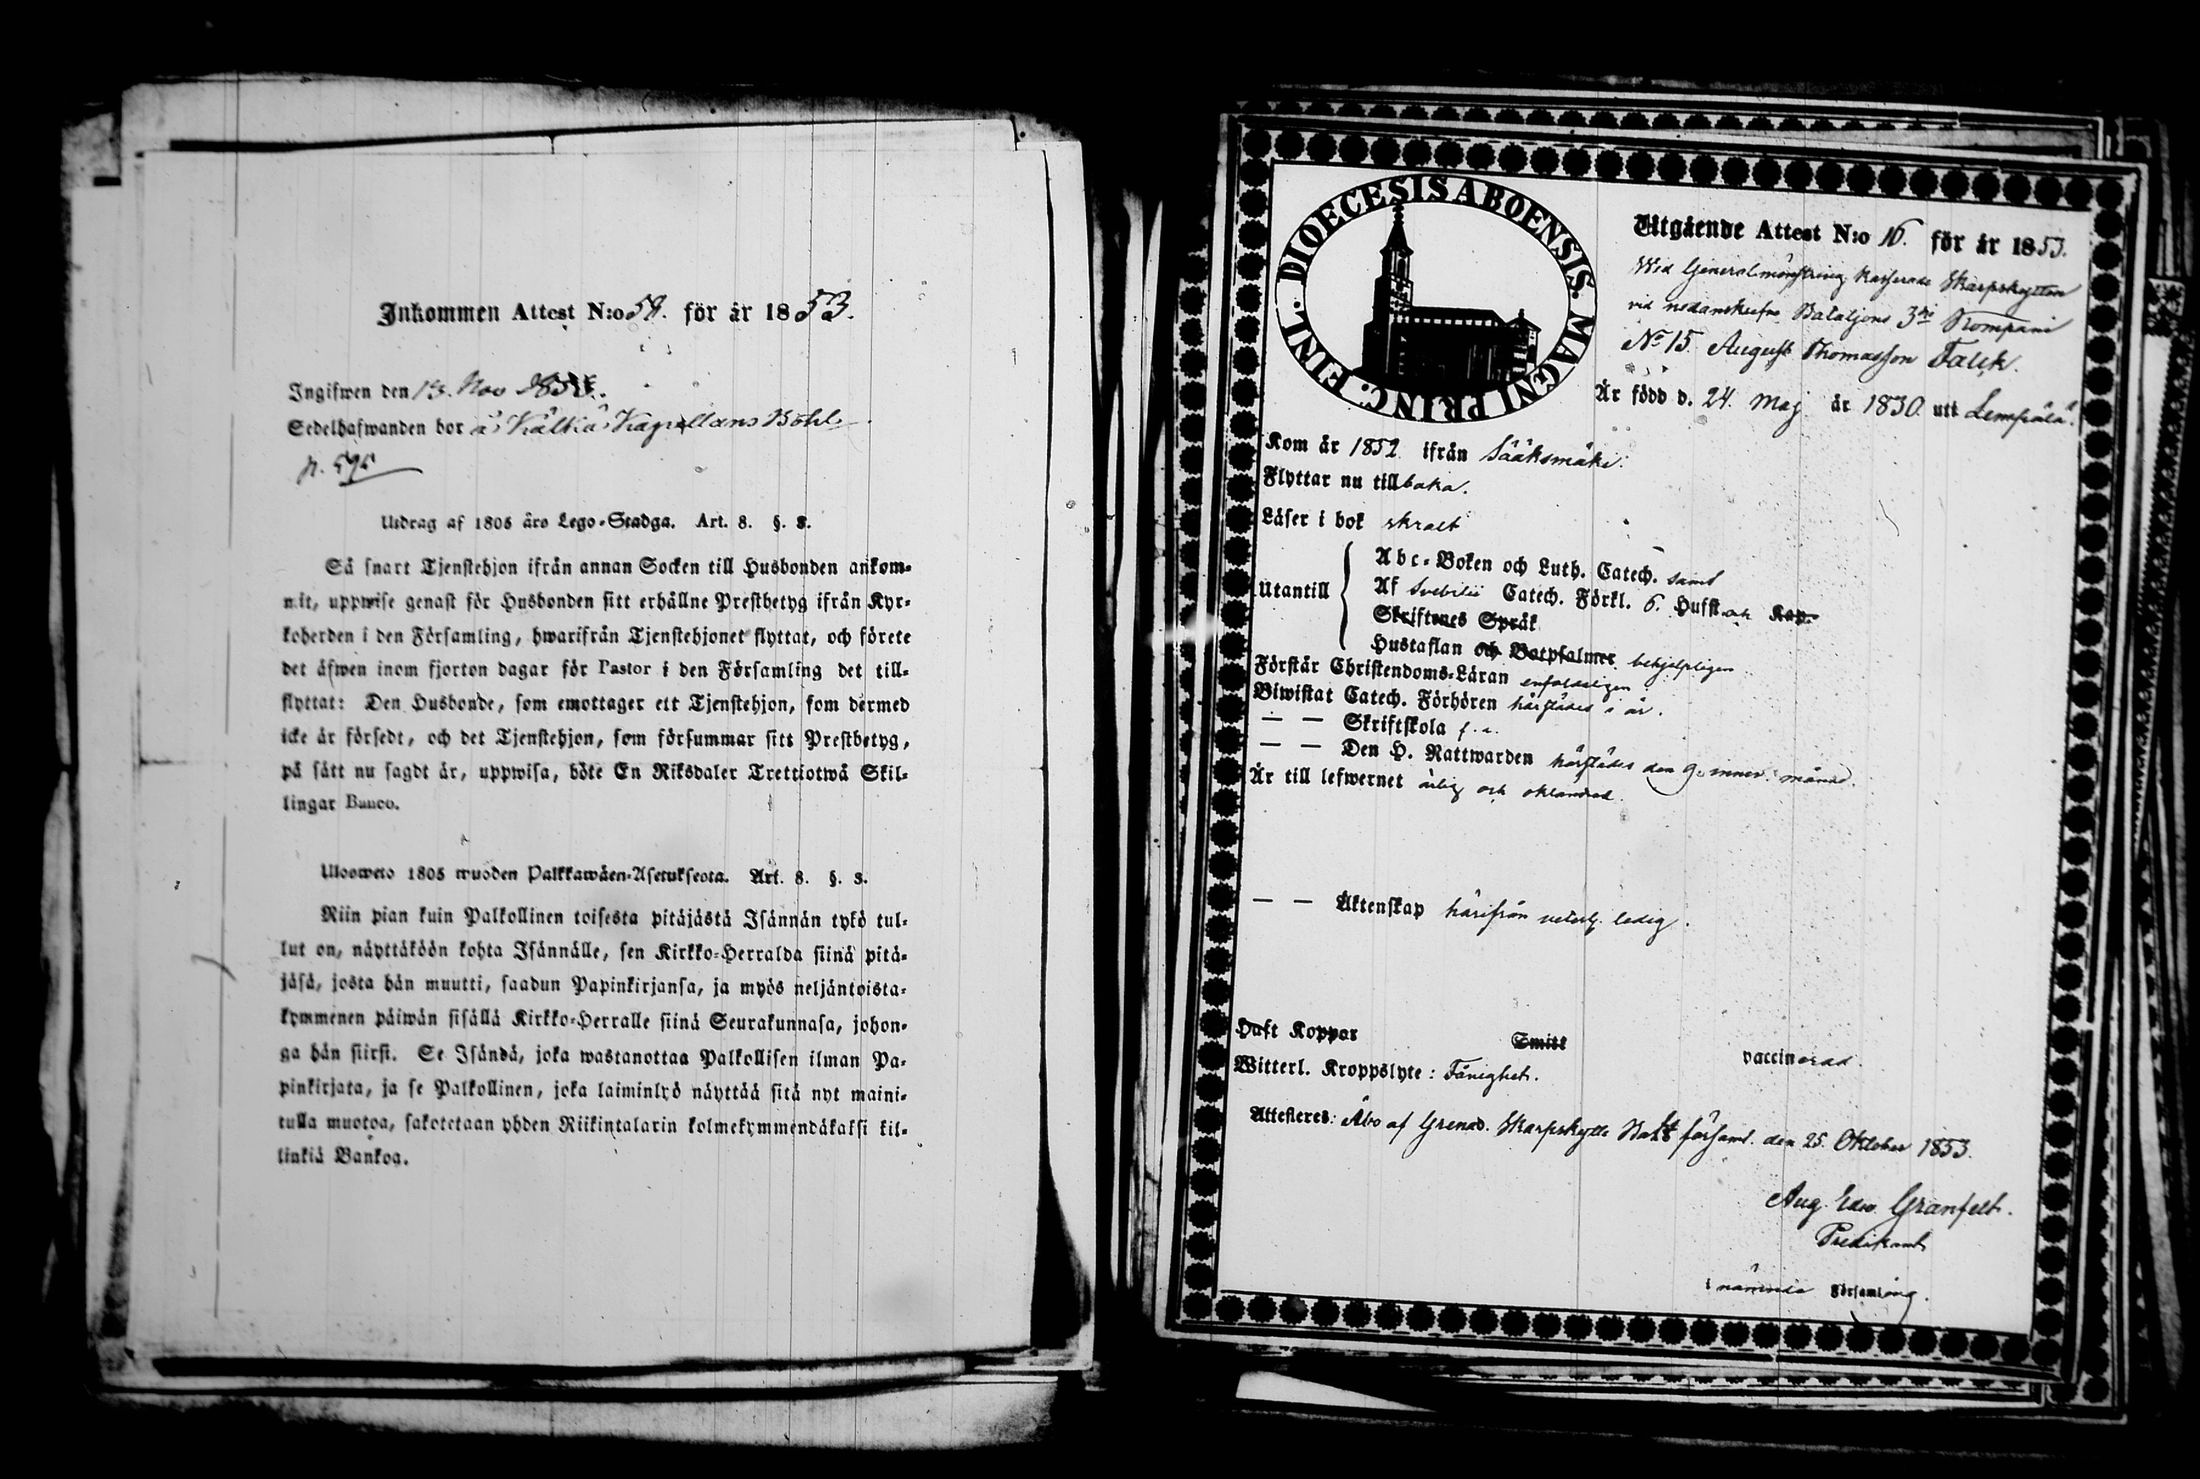 Inkommen Attest N:o 59. för år 1853.
Ingifwen den 13. Nov 1853.
Sedelhafwanden bor å Kälkiä Kapellans Böhle.
p. 595
Utdrag af 1805 års Lego-Stadga. Art. 8. §. 3.
Så snart Tjenstehjon ifrån annan Socken till Husbonden ankom-
mit, uppwise genast för Husbonden sitt erhållne Prestbetyg ifrån Kyr-
koherden i den Församling, hwarifrån Tjenstehjonet flyttat, och förete
det äfwen inom fjorton dagar för Pastor i den Församling det till-
flyttat: Den Husbonde, som emottager ett Tjenstehjon, som dermed
icke är försedt, och det Tjenstehjon, som försummar sitt Prestbetyg,
på sätt nu sagdt är, uppwisa, böte En Riksdaler Trettiotwå Skil-
lingar Banco.
Ulosweto 1805 wuoden Palkkawäen-Asetuksesta. Art. 8. §. 3.
Niin pian kuin Palkollinen toisesta pitäjästä Isännän tykö tul-
lut on, näyttäköön kohta Isännälle, sen Kirkko-Herralda siinä pitä-
jäsä, josta hän muutti, saadun Papinkirjansa, ja myös neljäntoista-
kymmenen päiwän sisällä Kirkko-Herralle siinä Seurakunnasa, johon-
ga hän siirst. Se Isändä, joka wastanottaa Palkollisen ilman Pa-
pinkirjata, ja se Palkollinen, joka laiminlyö näyttää sitä nyt maini-
tulla muotoa, sakotetaan yhden Riikintalarin kolmekymmendäkaksi kil-
linkiä Bankoa.
DIOECESIS ABOENSIS. MAGNI PRINC: FINL.
Utgående Attest N:o 16. för år 1853.
Wid Generalmönstring kasserade Skarpskytten
vid nedanskrefne Bataljons 3die Kompani
No 15. August Thomasson Falck.
Är född d. 24. Maj år 1830. uti Lempälä.
Kom år 1852 ifrån Sääksmäki.
Flyttar nu tillbaka.
Läser i bok skralt
Utantill
Abc-Boken och Luth. Catech. samt
Af Svebilii Catech. Förkl. 6. Hufst. och Kap.
Skriftenes Språk
Hustaflan och Botpsalmer behjelpligen
Förstår Christendoms-Läran enfaldeligen
Biwistat Catech. Förhören härstädes i år.
— — Skriftskola
— — Den H. Nattwarden härstädes den 9. innev. månad.
Är till lefwernet ärlig och oklandrad.
— — Äktenskap härifrån veterl. ledig.
Haft Koppor Smitt vaccinerad.
Witterl. Kroppslyte: Fånighet.
Attesteres: Åbo af Grenad. Skarpskytte Bat:s församl. den 25. Oktober 1853.
Aug. Edw. Granfelt.
Predikant
i nämnde Församling.